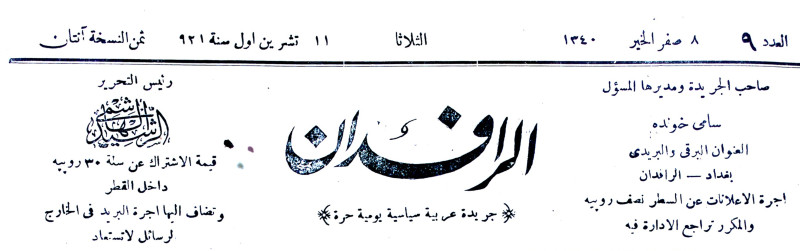 العدد ٩ ٨ صفر الخير ١٣٤٠ الثلاثا ١١ تشرين اول سنة ٩٢١ ثمن النسخة آنتان
صاحب الجريدة ومديرها المسؤل
سامي خونده
العنوان البرقي والبريدي
بغداد — الرافدان
اجرة الاعلانات عن السطر نصف روبيه
والمكرر تراجع الادارة فيه
الرافدان
جريدة عربية سياسية يومية حرة
رئيس التحرير
الرشيد الهاشمي
قيمة الاشتراك عن سنة ٣٠ روبيه
داخل القطر
وتضاف اليها اجرة البريد في الخارج
الرسائل لا تستعاد